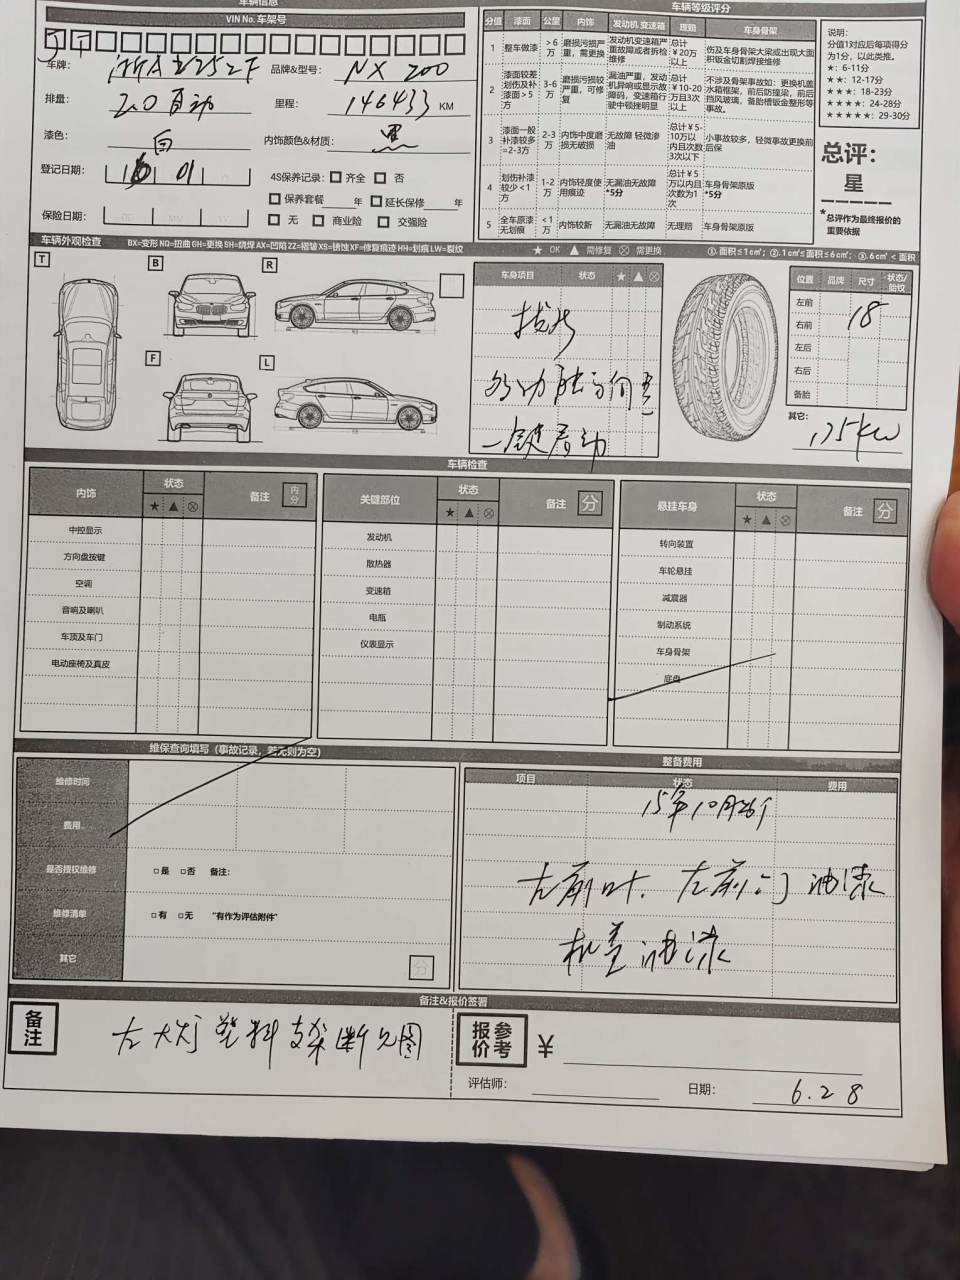 车辆信息
车辆等级评分
VIN No. 车架号
车牌：
品牌&型号： NX 200
排量： 2.0自动
里程： 146433 KM
漆色： 白
内饰颜色&材质： 黑
登记日期： 16 01
4S保养记录： 齐全 否
保养套餐 年 延长保修 年
保险日期： DD MM YY
无 商业险 交强险
分值 漆面 公里 内饰 发动机 变速箱 理赔 车身骨架
1 整车做漆 >6万 磨损污损严重，需更换 发动机变速箱严重故障或者拆检维修 总计￥20万以上 伤及车身骨架大梁或出现大面积钣金切割焊接维修
2 漆面较差划伤及补漆面>5方 3-6万 磨损污损较严重，可修复 漏油严重，发动机异响或显示故障码，变速箱行驶中顿挫明显 总计￥10-20万且3次以上 不涉及骨架事故如：更换机盖水箱框架，前后防撞梁，前后挡风玻璃，备胎槽钣金整形等事故。
3 漆面一般补漆较多=2-3方 2-3万 内饰中度磨损无破损 无故障 轻微渗油 总计￥5-10万以内且次数3次以下 小事故较多，轻微事故更换前后保
4 划伤补漆较少<1方 1-2万 内饰轻度使用痕迹 无漏油无故障*5分 总计￥5万以内且次数为1次 车身骨架原版*5分
5 全车原漆无划痕 <1万 内饰较新 无漏油无故障 无理赔 车身骨架原版
说明：
分值1对应后每项得分为1分，以此类推。
★：6-11分
★★：12-17分
★★★：18-23分
★★★★：24-28分
★★★★★：29-30分
总评：
星
*总评作为最终报价的重要依据
车辆外观检查
BX=变形 NQ=扭曲 GH=更换 SH=烧焊 AX=凹陷 ZZ=褶皱 XS=锈蚀 XF=修复痕迹 HH=划痕 LW=裂纹
★ OK ▲ 需修复 ⊗ 需更换
①.面积≤1c㎡；②.1c㎡≤面积≤6c㎡；③.6c㎡<面积
T
B
R
F
L
车身项目 状态 ★ ▲ ⊗
多功能方向盘
一键启动
位置 品牌 尺寸 状态/胎纹
左前
右前
18
左后
右后
备胎
其它：
175kw
车辆检查
内饰 状态 备注 内分
★ ▲ ⊗
中控显示
方向盘按键
空调
音响及喇叭
车顶及车门
电动座椅及真皮
关键部位 状态 备注 分
★ ▲ ⊗
发动机
散热器
变速箱
电瓶
仪表显示
悬挂车身 状态 备注 分
★ ▲ ⊗
转向装置
车轮悬挂
减震器
制动系统
车身骨架
底盘
维保查询填写（事故记录，若无则为空）
维修时间
费用
是否授权维修 □是 □否 备注：
维修清单 □有 □无 "有作为评估附件"
其它
分
整备费用
项目 状态 费用
15年10月
左前叶、左前门油漆
机盖油漆
备注&报价签署
备注
左大灯塑料支架断见图
参考报价 ￥
评估师：
日期： 6.28